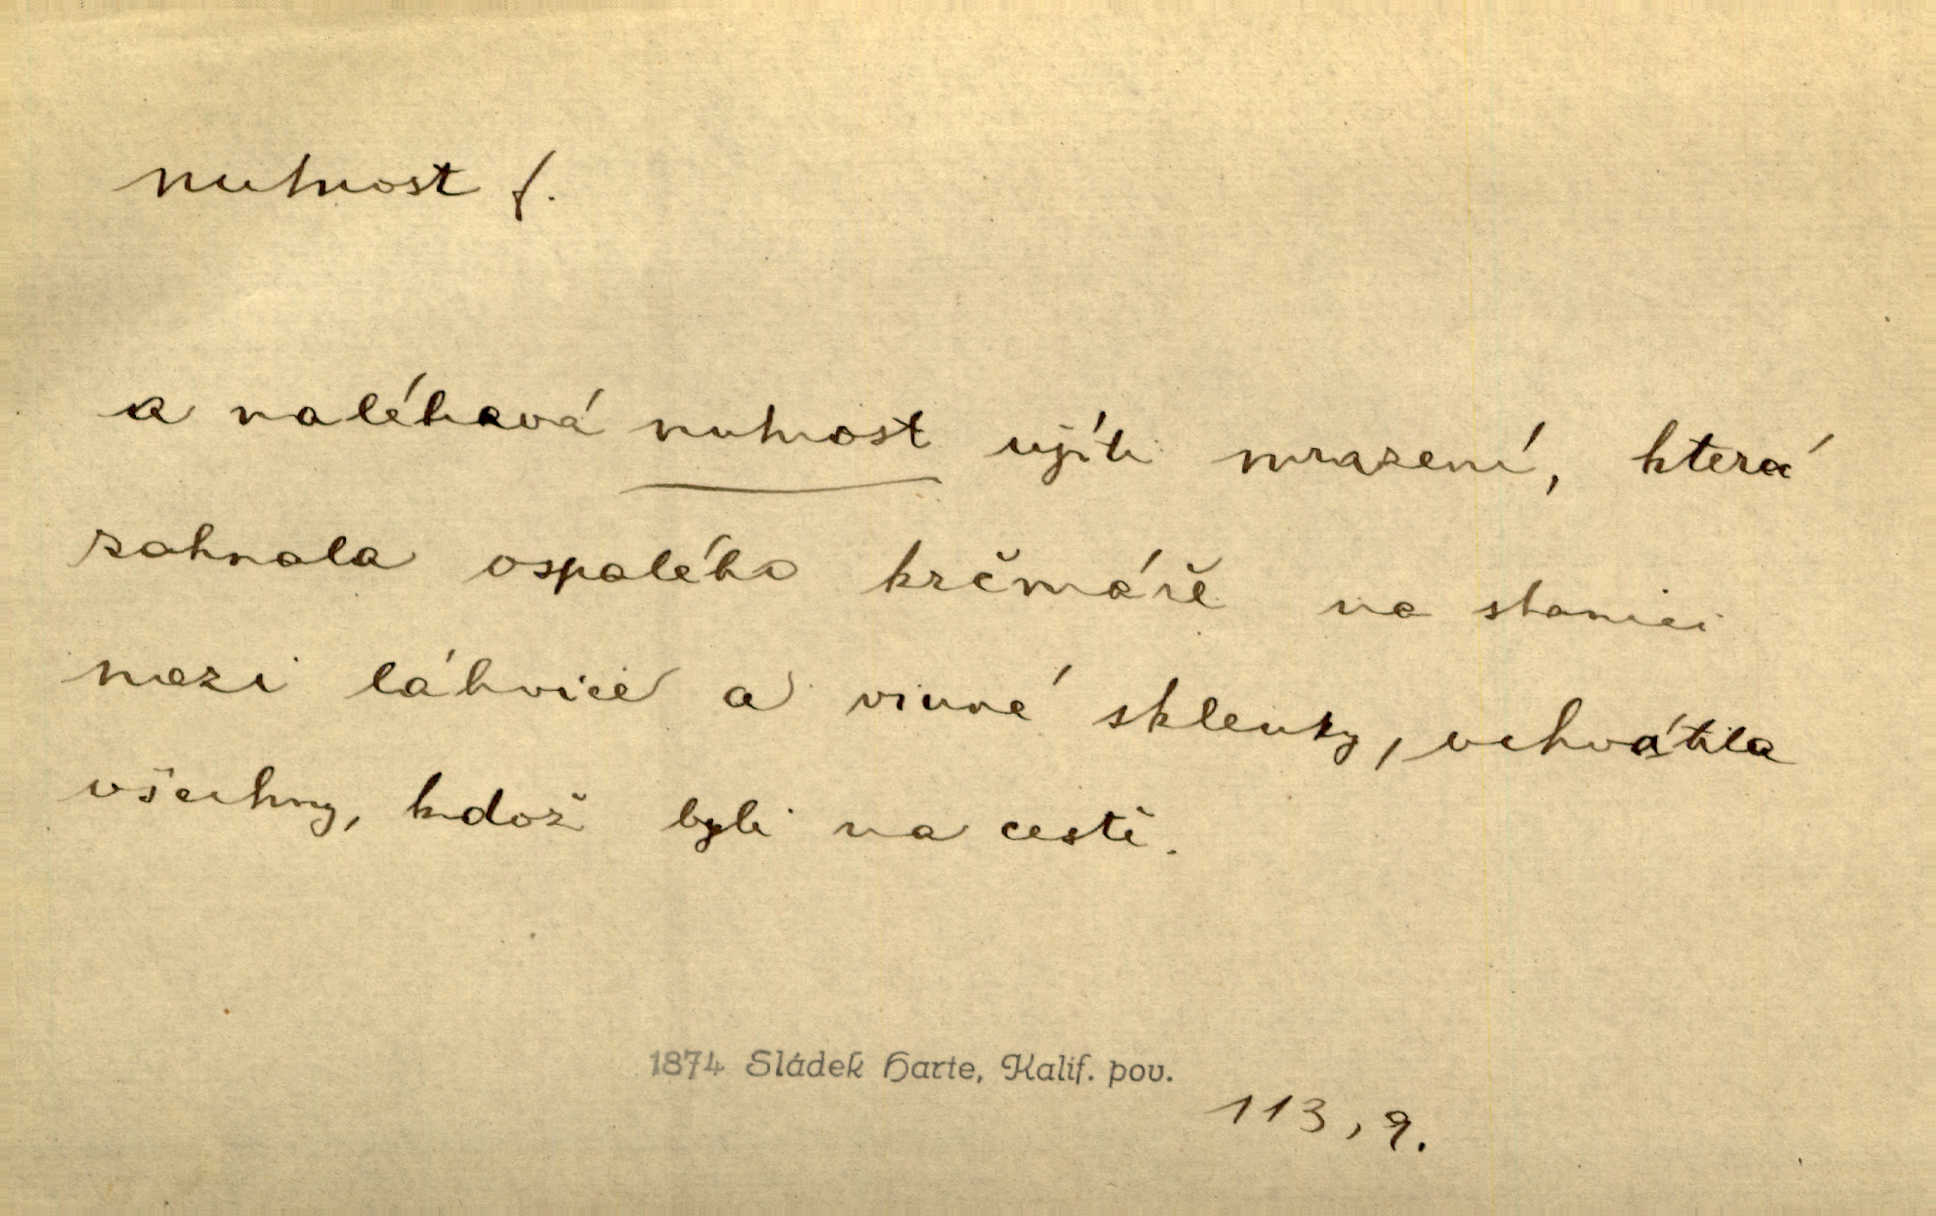 nutnost f.
a naléhavá nutnost ujíti mrazení, která
zahnala ospalého krčmáře na stanici
mezi láhvice a vinné sklenky, uchvátila
všechny, kdož byli na cestě.
1874 Sládek Harte, Kalif. pov.
113, 9.